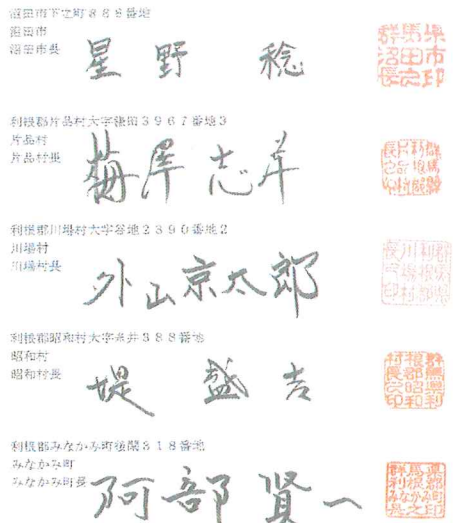 沼田市下之町８８８番地
沼田市
沼田市長
星野 稔
群馬県
沼田市
長之印
利根郡片品村大字鎌田３９６７番地３
片品村
片品村長
梅澤志洋
群馬縣
利根郡
片品村
長之印
利根郡川場村大字谷地２３９０番地２
川場村
川場村長
外山京太郎
利根郡昭和村大字糸井３８８番地
昭和村
昭和村長
堤 盛吉
群馬県利
根郡昭和
村長之印
利根郡みなかみ町後閑３１８番地
みなかみ町
みなかみ町長
阿部賢一
群馬県
利根郡
みなかみ町
長之印